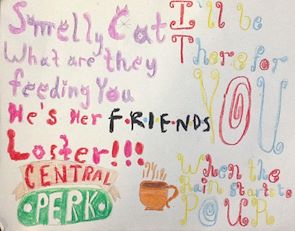 Smelly Cat
What are they
feeding You
He's Her
Loster!!!
F.R.I.E.N.D.S
CENTRAL
PERK
I'll be
There for
YOU
When the
Rain starts to
POUR